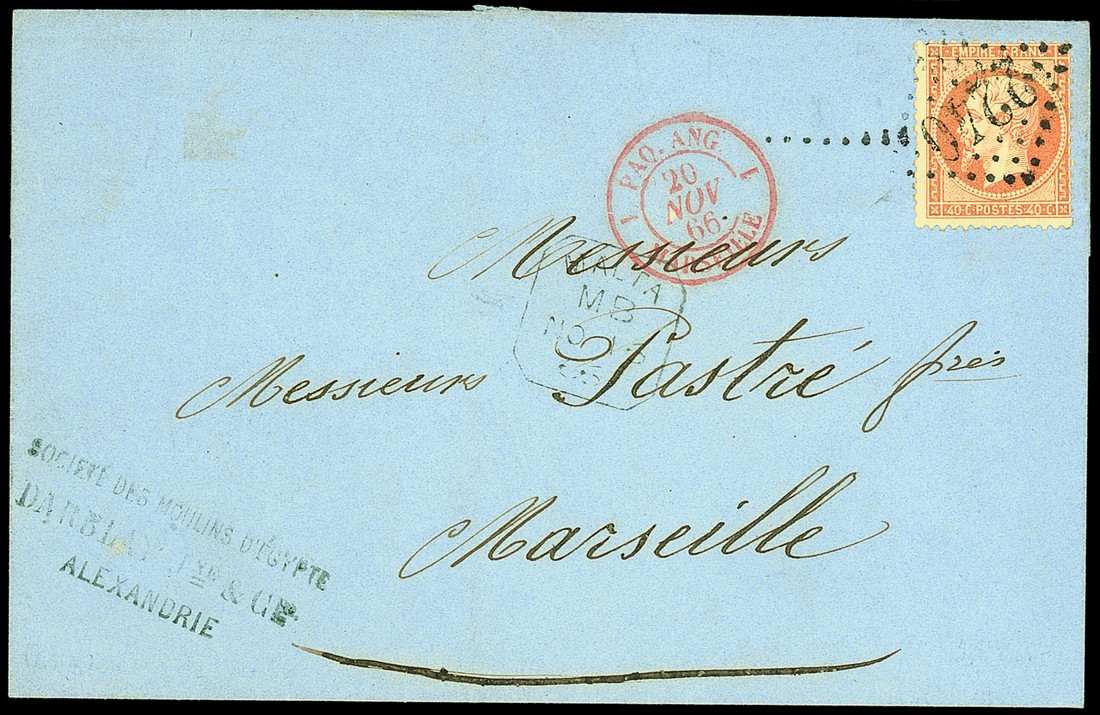 EMPIRE FRANC
2240
40·C·POSTES·40·C
1 PAQ. ANG. 1
20
NOV
66
MARSEILLE
MALTA
MB
NO
66
Messieurs
Messieurs Pastré frès
Marseille
SOCIÉTÉ DES MOULINS D'ÉGYPTE
DARBLAY Jne & Cie
ALEXANDRIE